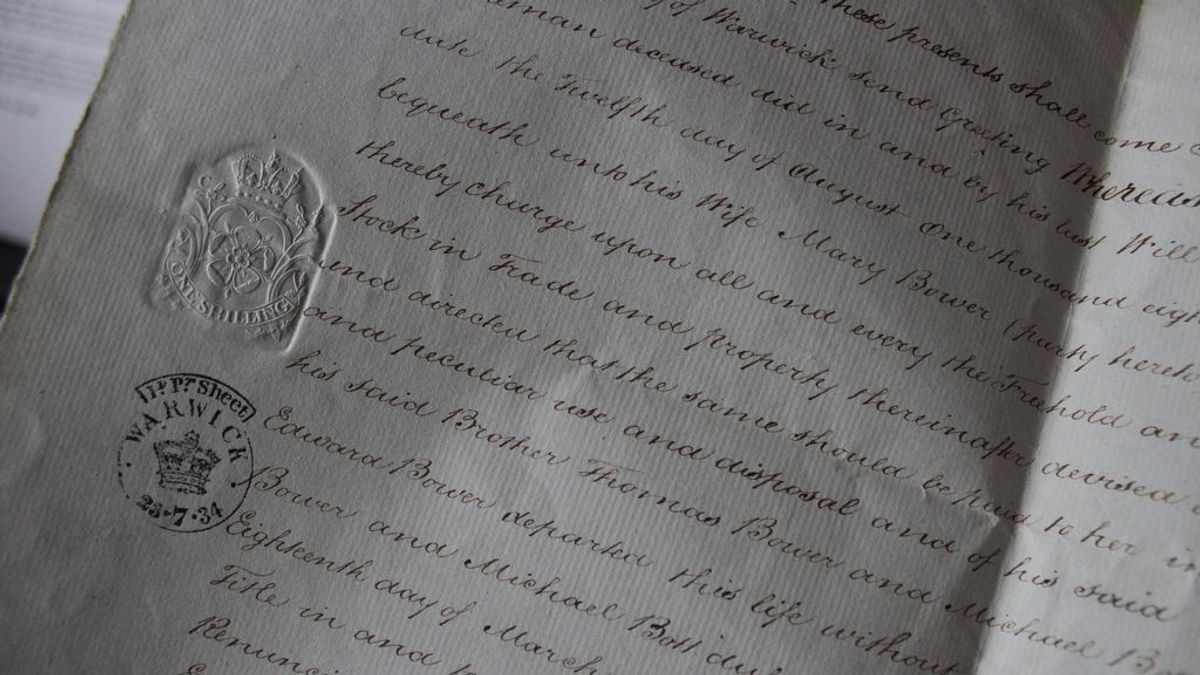 these presents shall come
of Warwick send Greeting Whereas
deceased did in and by his last Will
date the Twelfth day of August One thousand eigh
bequeath unto his Wife Mary Bower (party hereto
thereby charge upon all and every the Freehold an
Stock in Trade and property thereinafter devised
and directed that the same should be paid to her in
and peculiar use and disposal and of his said
his said Brother Thomas Bower and Michael B
Edward Bower departed this life without
Bower and Michael Bott du
Eighteenth day of March
Title in and
Renunci
ONE SHILLING
Pr. Sheet
WARWICK
23·7·34